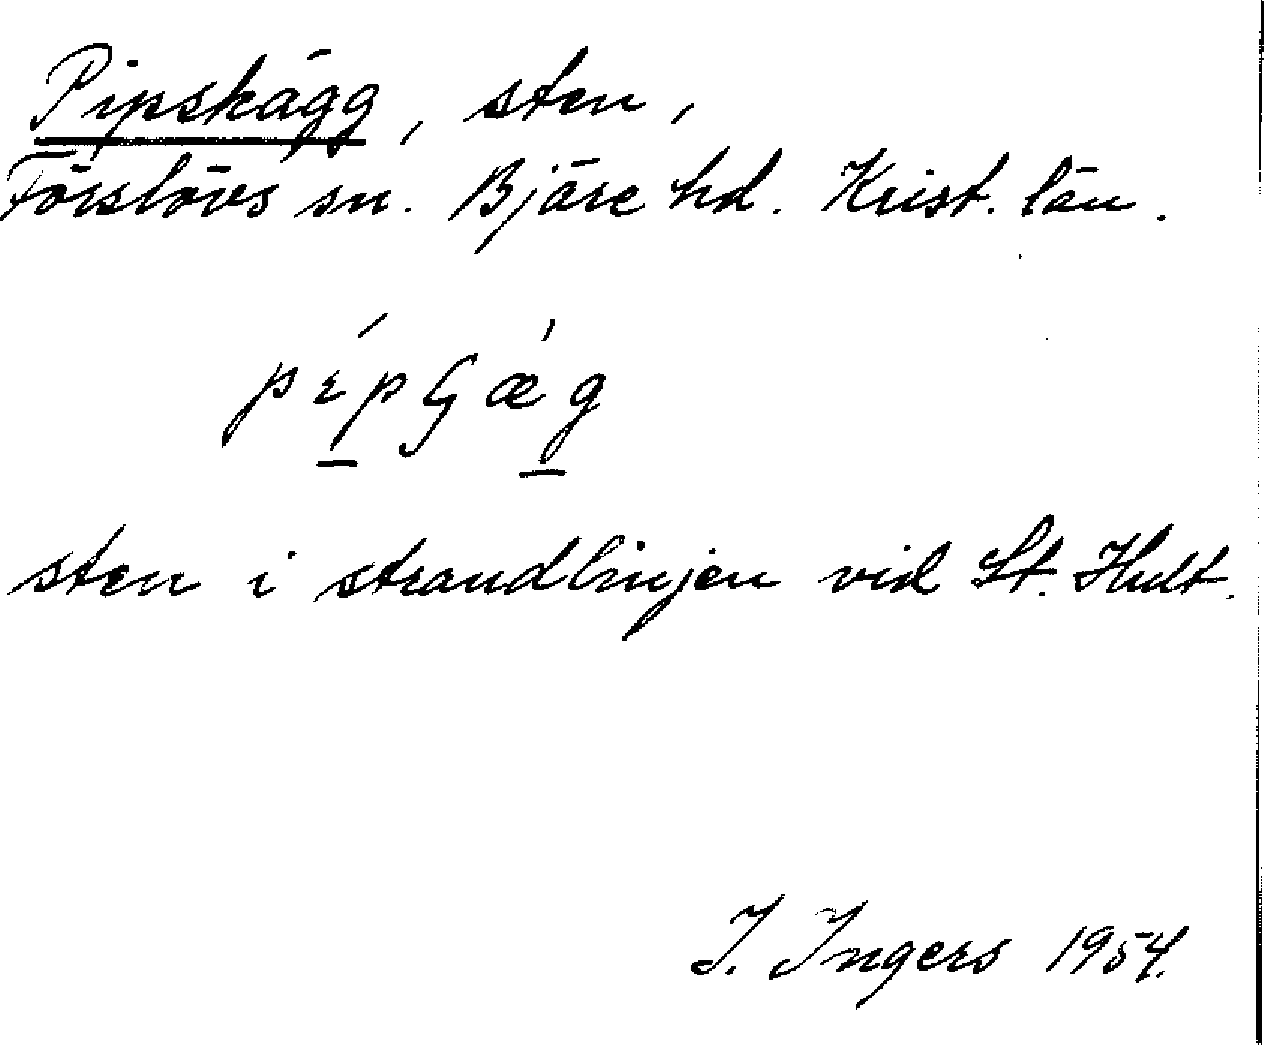 Pipskägg, sten,
Förslövs sn. Bjäre hd. Krist. län.
sten i strandlinjen vid St. Hult.
I. Ingers 1954.